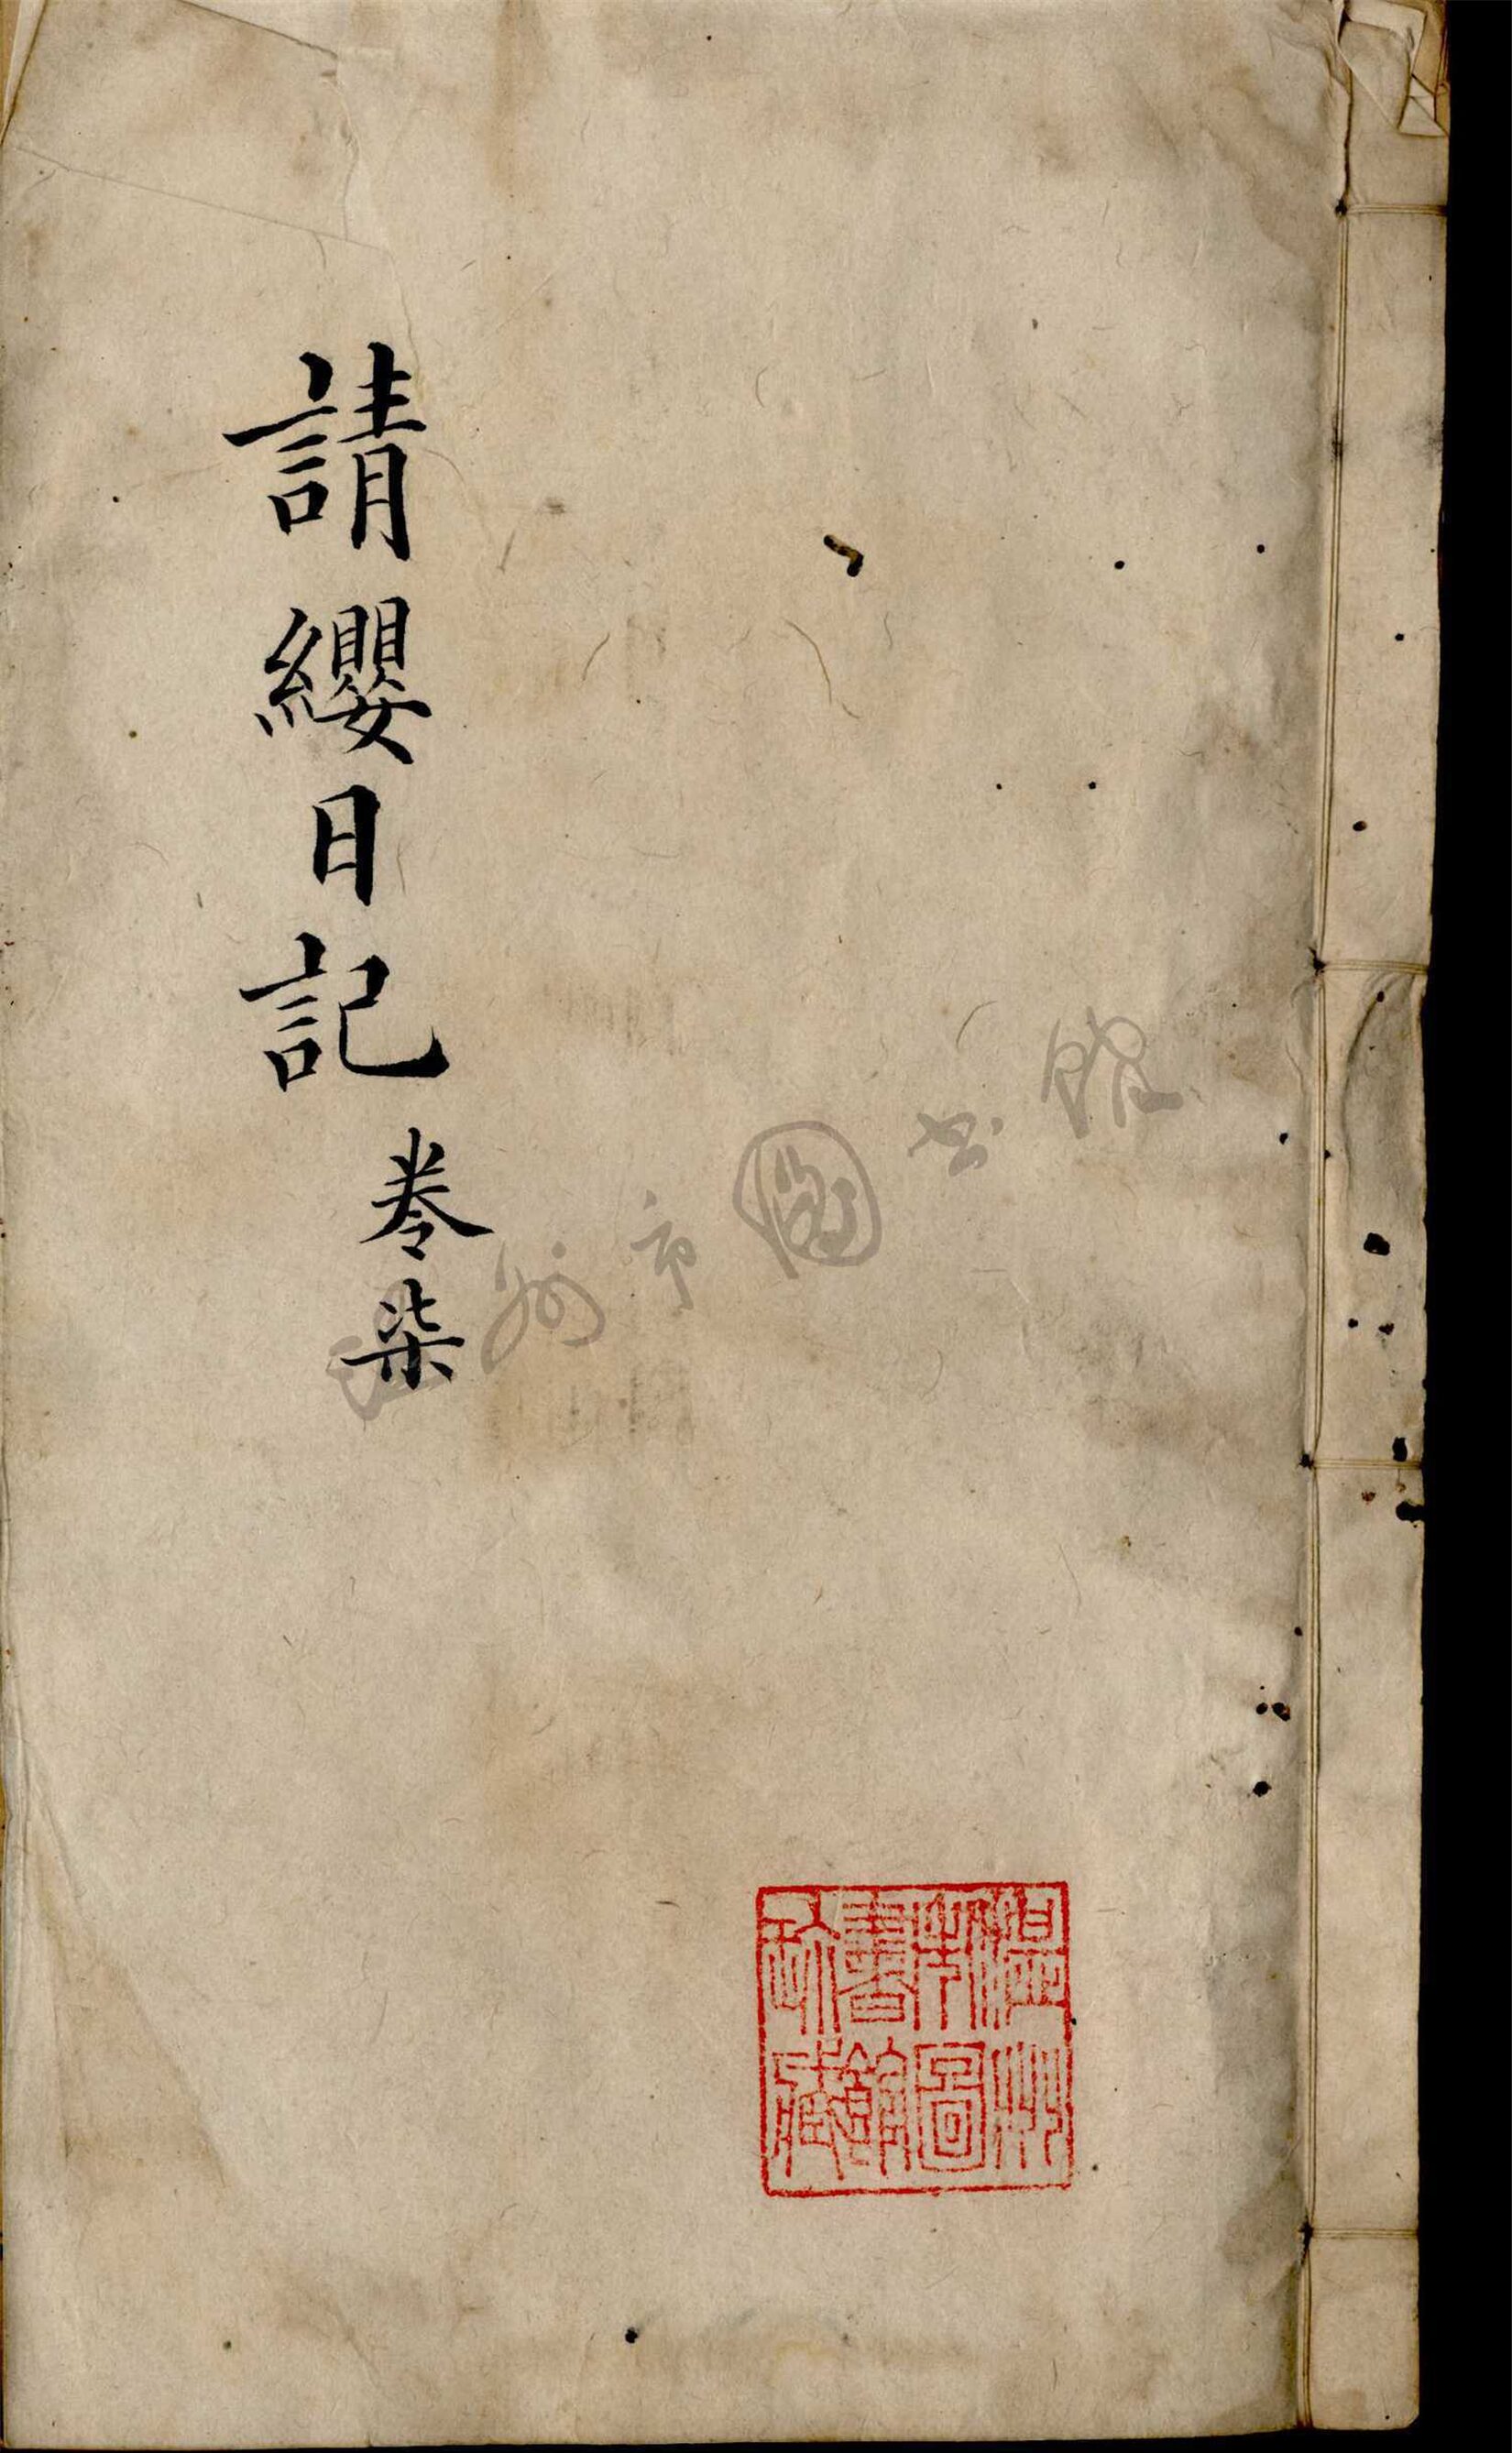 請纓日記
卷柒
溫州市圖书館
溫州
市圖
書館
珎藏